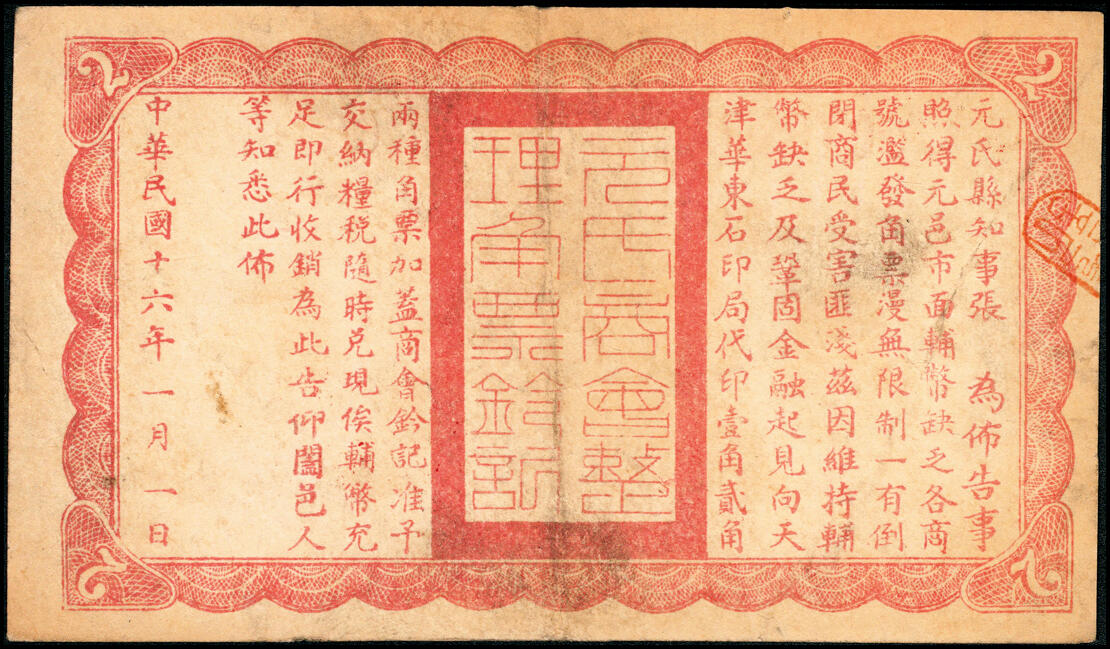 2
2
元氏縣知事張 為佈告事
照得元邑市面輔幣缺乏各商
號濫發角票漫無限制一有倒
閉商民受害匪淺茲因維持輔
幣缺乏及鞏固金融起見向天
津華東石印局代印壹角貳角
元氏商會整
理角票鈐記
兩種角票加蓋商會鈐記准予
交納糧稅隨時兌現俟輔幣充
足即行收銷為此告仰闔邑人
等知悉此佈
中華民國十六年一月一日
2
2